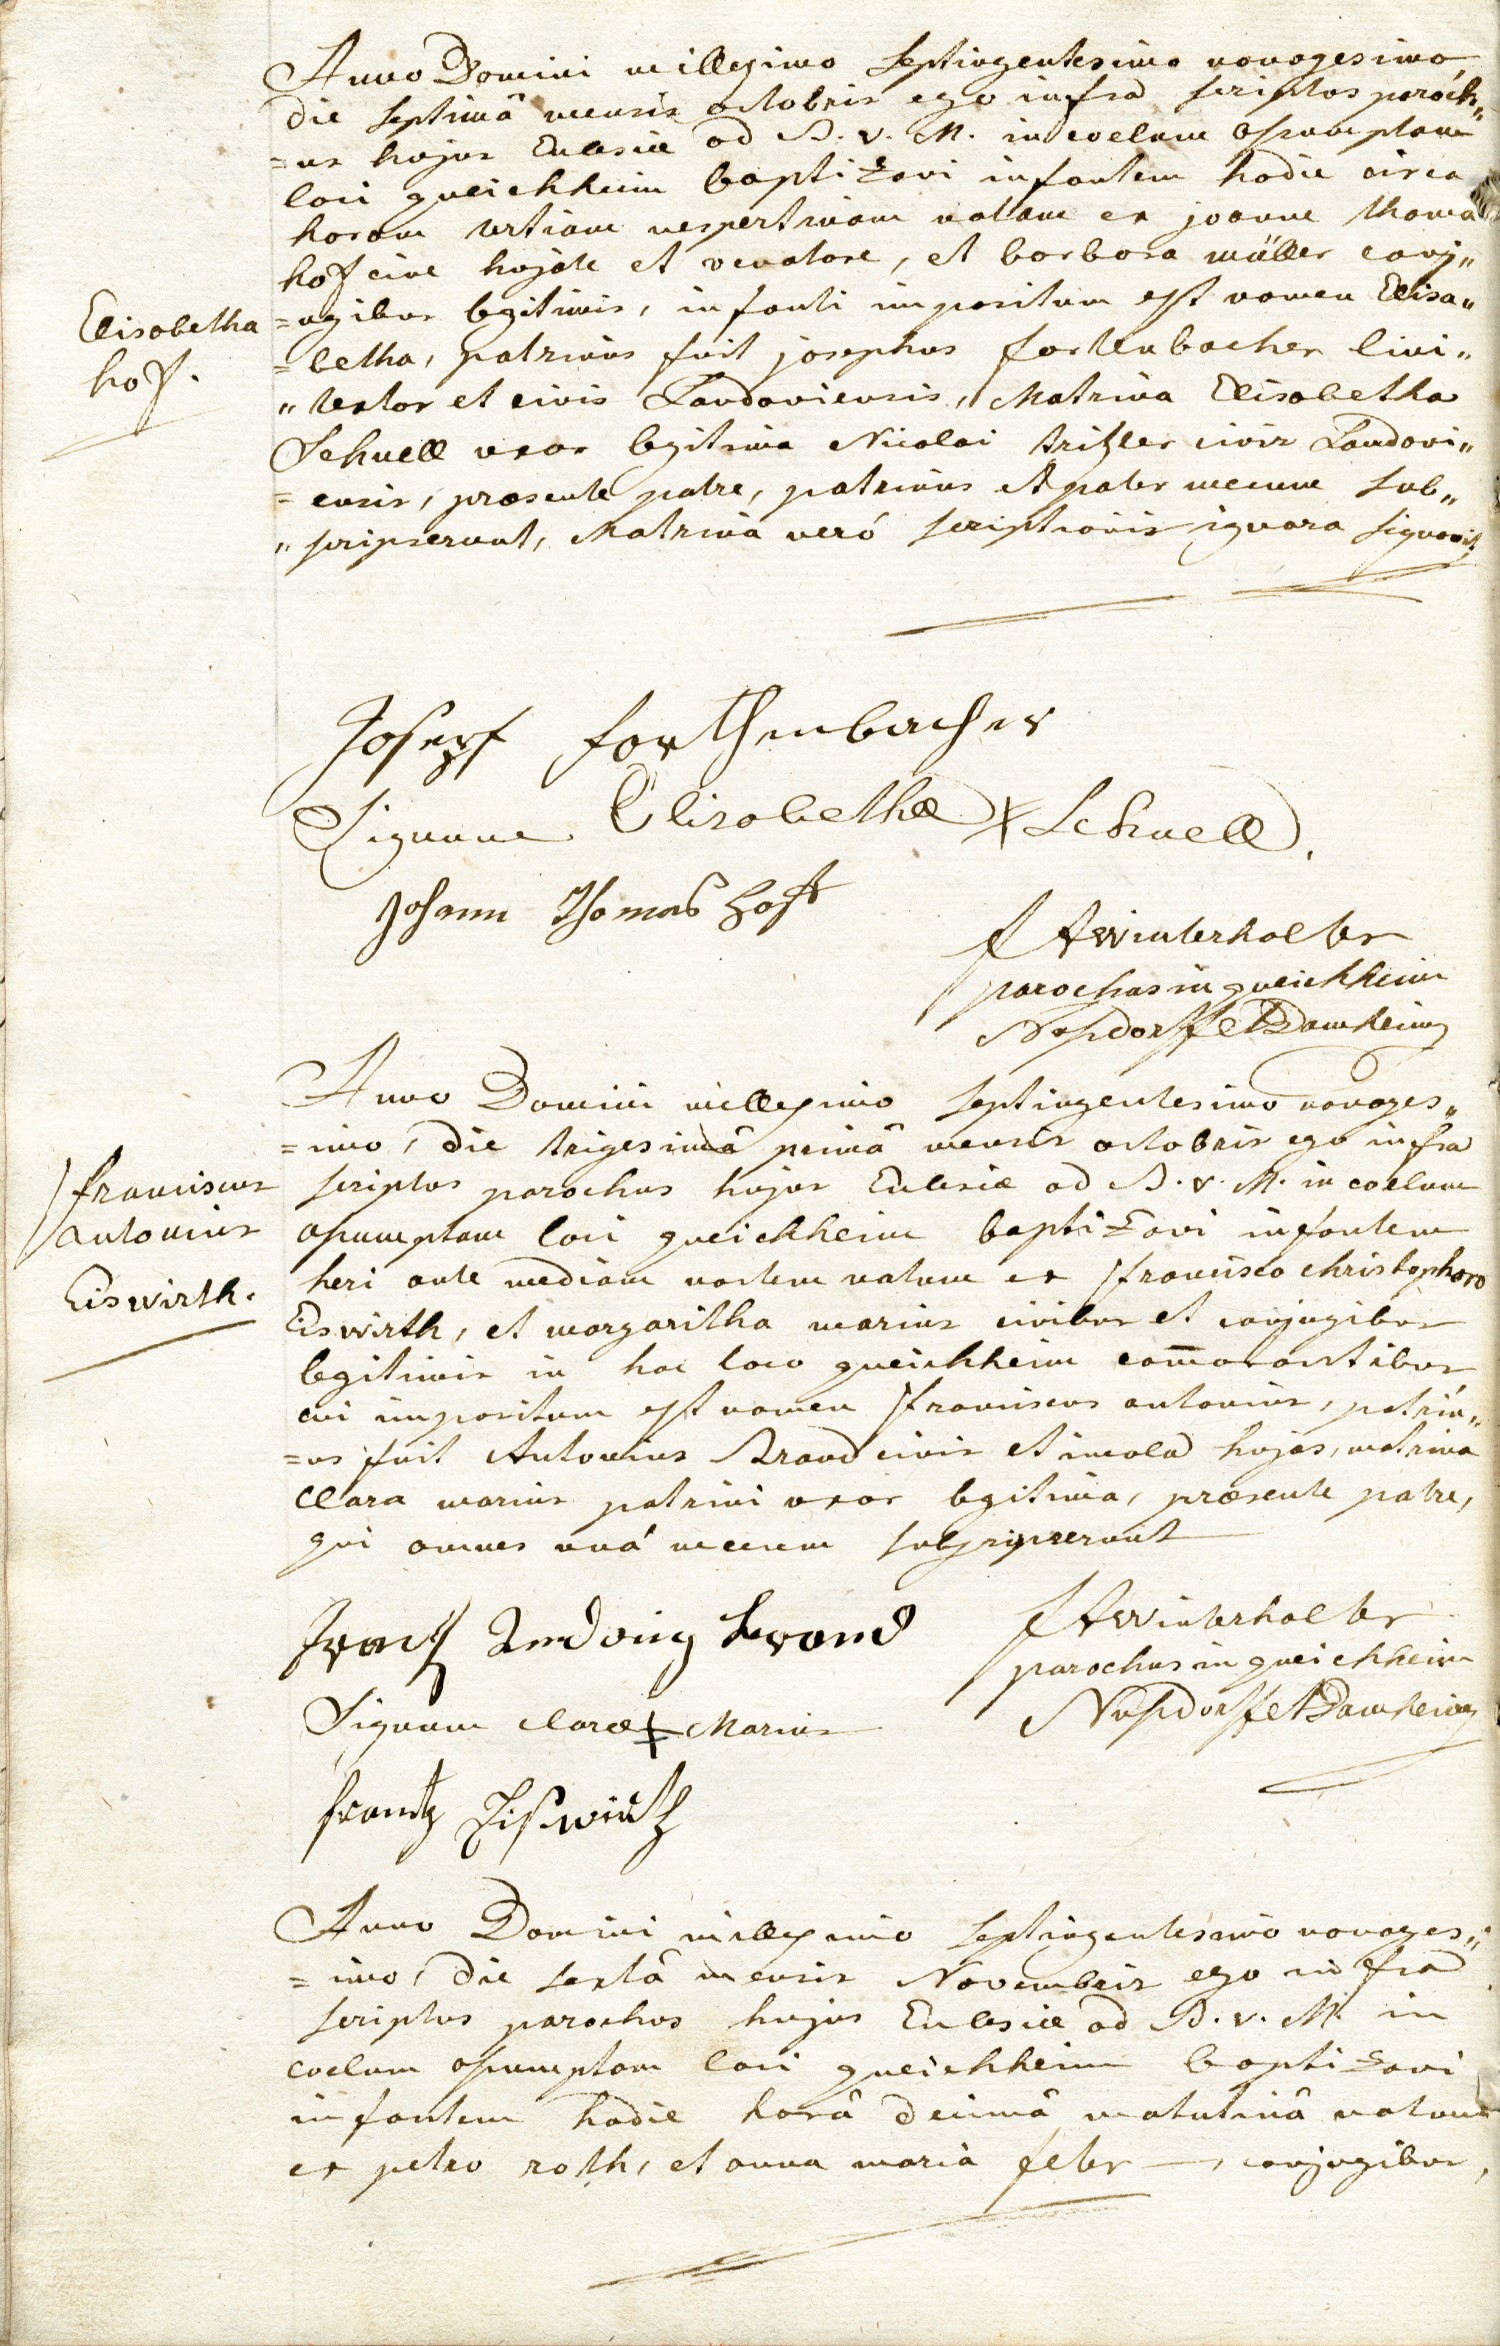 Anno Domini millesimo septingentesimo nonagesimo,
die septimâ mensis octobris ego infra scriptus paroch„
=us hujus Ecclesiæ ad B. v. M. in coelum assumptam
loci queichheim baptizavi infantem hodie circa
horam tertiam vespertinam natam ex joanne thoma
hof cive hujate et venatore, et barbara müller conj„
=ugibus legitimis, infanti impositum est nomen Elisa„
=betha, patrinus fuit josephus fortenbacher lini„
„textor et civis Landaviensis, Matrina Elisabetha
Schnell uxor legitima Nicolai tritzler civis Landavi„
=ensis, præsente patre, patrinus et pater mecum sub„
„scripserunt, Matrina veró scriptionis ignara signavit
Elisabetha
hof.
Joseph forthenbacher
Signum Elisabethæ + Schnell.
Johann Thomas Hoff
f A Winterhalter
parochus in queichheim
Nussdorff et Damheim
Anno Domini millesimo septingentesimo nonages„
=imo, die trigesimâ primâ mensis octobris ego infra
scriptus parochus hujus Ecclesiæ ad B. v. M. in coelum
assumptam loci queichheim baptizavi infantem
heri ante mediam noctem natum ex francisco christophoro
Eiswirth, et margaritha marius civibus et conjugibus
legitimis in hoc loco queichheim com̄orantibus
cui impositum est nomen franciscus antonius, patrin„
=us fuit Antonius Brand civis et incola hujas, matrina
Clara marius patrini uxor legitima, præsente patre,
qui omnes uná mecum subscripserunt
franciscus
antonius
Eiswirth.
Frantz Andonig brand
f A Winterhalter
parochus in queichheim
Nussdorff et Damheim
Signum claræ + Marius
frantz Eißwirth
Anno Domini millesimo septingentesimo nonages„
=imo, die sextâ mensis Novembris ego infra
scriptus parochus hujus Ecclesiæ ad B. v. M. in
coelum assumptam loci queichheim baptizavi
infantem hodie horâ decimâ matutinâ natum
ex petro roth, et anna maria feter —, conjugibus,